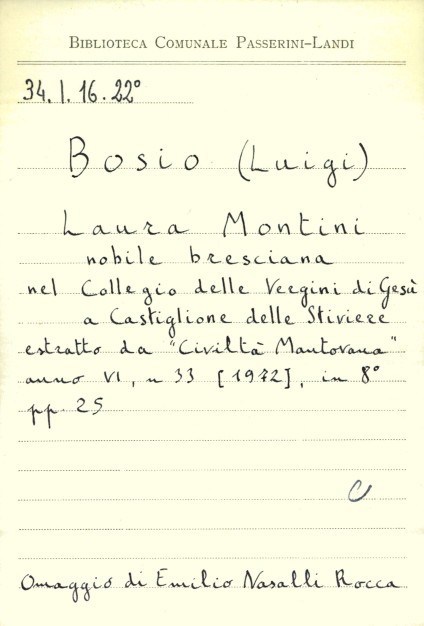 BIBLIOTECA COMUNALE PASSERINI-LANDI
34.I.16.22°
Bosio (Luigi)
Laura Montini
nobile bresciana
nel Collegio delle Vergini di Gesù
a Castiglione delle Stiviere
estratto da "Civiltà Mantovana"
anno VI, n 33 [1972], in 8°
pp. 25
C
Omaggio di Emilio Nasalli Rocca